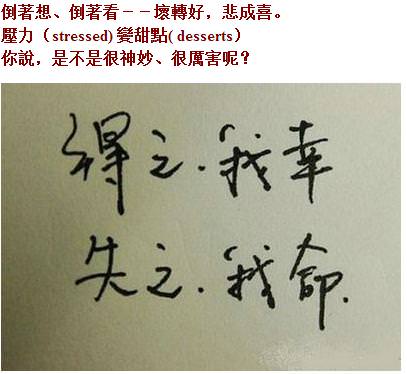 倒著想、倒著看－－壞轉好，悲成喜。
壓力（stressed) 變甜點( desserts）
你說，是不是很神妙、很厲害呢？
得之.我幸
失之.我命.